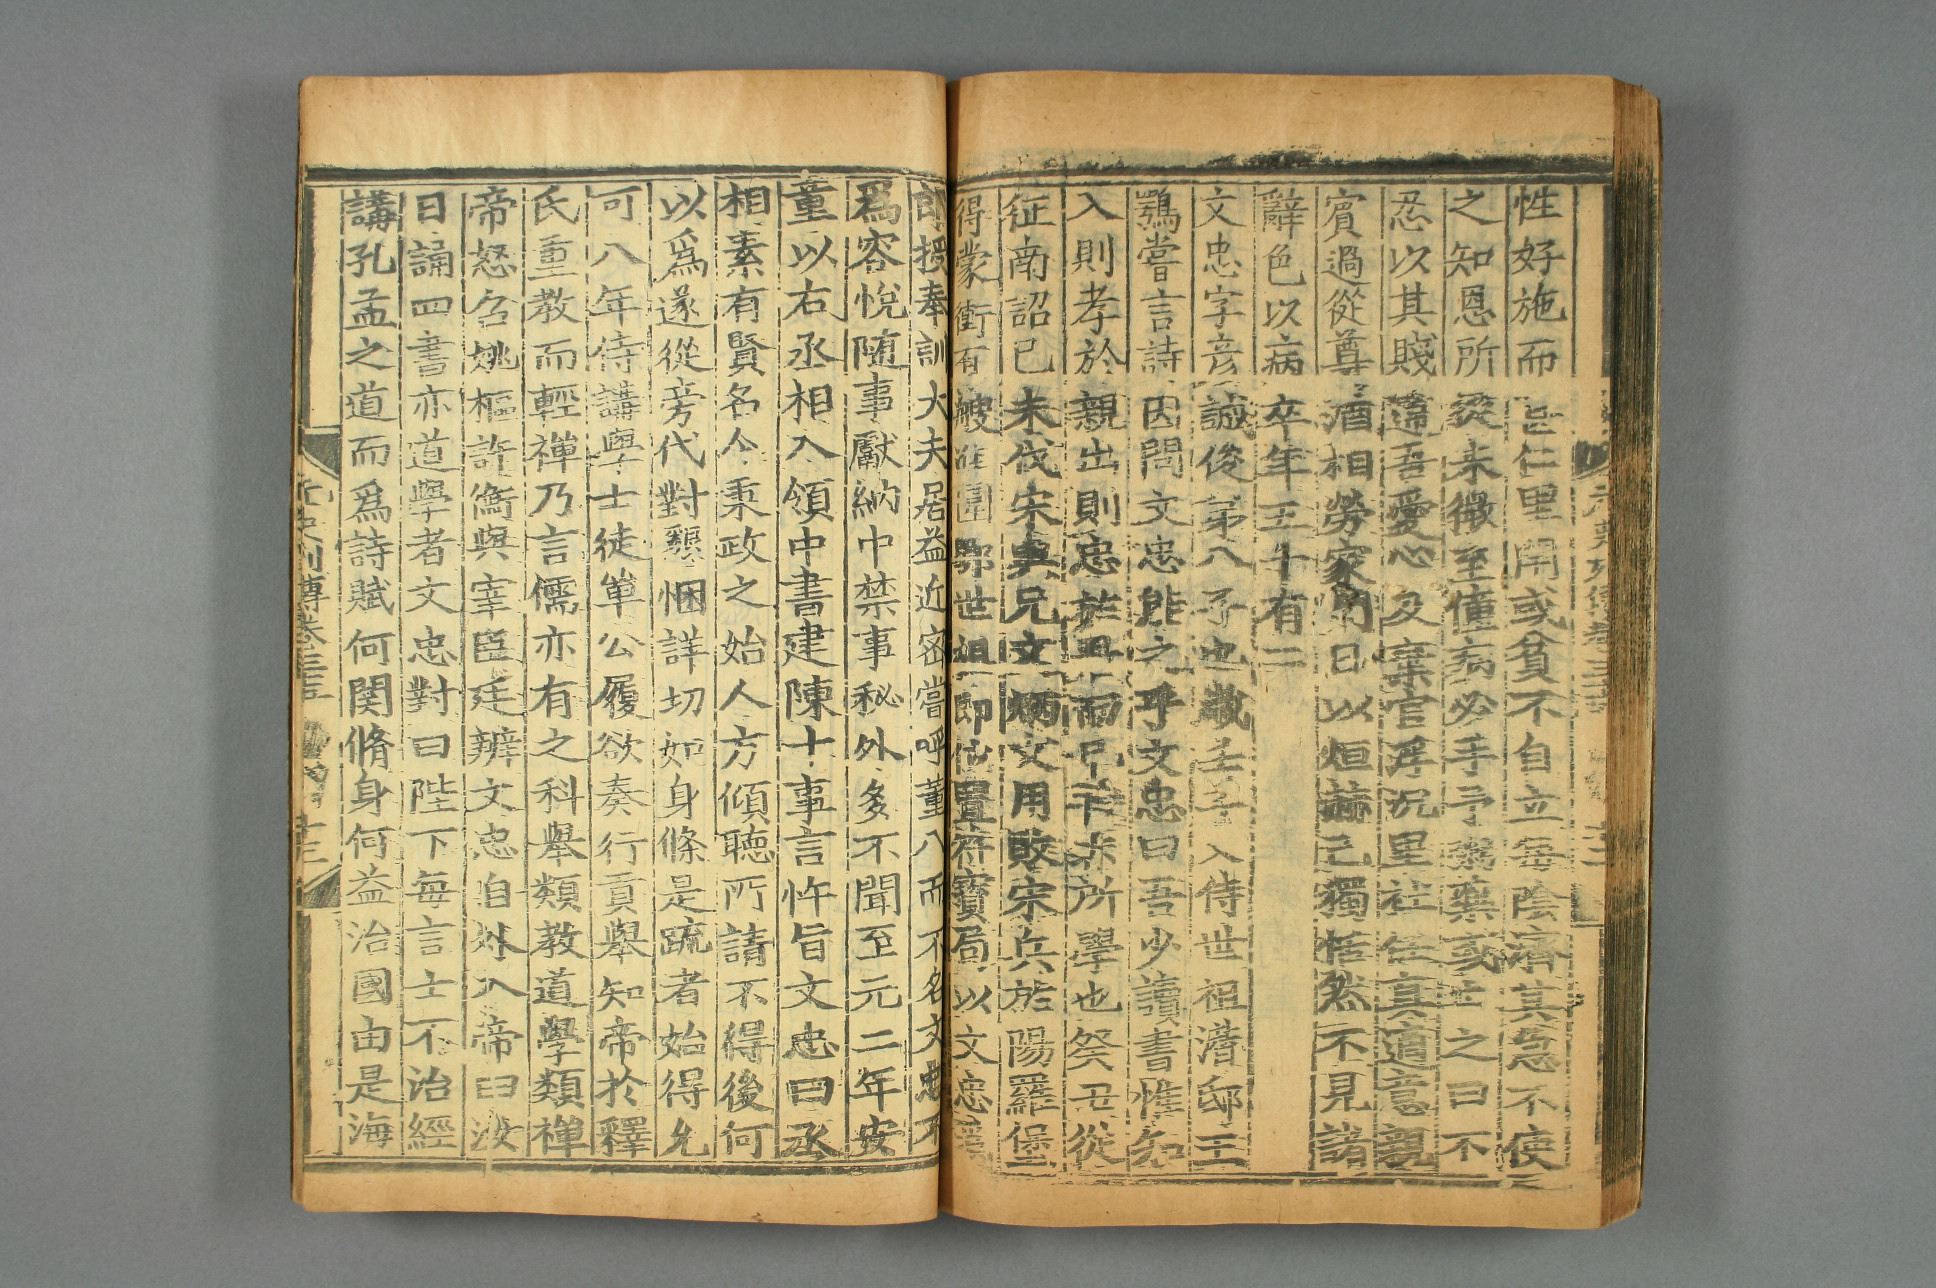 性好施而甚仁里閈或貧不自立每陰濟其急不使
之知恩所從来微至僮病必手予粥藥或止之曰不
忍以其賤違吾愛心及棄官浮沉里社任真適意親
賓過從尊酒相勞家門日以烜赫己獨恬然不見諸
辭色以病卒年五十有二
文忠字彦誠俊第八子也歳壬子入侍世祖潜邸王
鶚嘗言詩因問文忠能之乎文忠曰吾少讀書惟知
入則孝於親出則忠於君而已詩非所學也癸丑從
征南詔己未伐宋與兄文炳文用敗宋兵於陽羅堡
得蒙衝百艘進圍鄂世祖即位置符寶局以文忠爲
郎授奉訓大夫居益近密嘗呼董八而不名文忠不
爲容悅随事獻納中禁事秘外多不聞至元二年安
童以右丞相入領中書建陳十事言忤旨文忠曰丞
相素有賢名今秉政之始人方傾聽所請不得後何
以爲遂從旁代對懇悃詳切如身條是疏者始得允
可八年侍講學士徒單公履欲奏行貢舉知帝於釋
氏重教而輕禪乃言儒亦有之科舉類教道學類禪
帝怒召姚樞許衡與宰臣廷辨文忠自外入帝曰汝
日誦四書亦道學者文忠對曰陛下每言士不治經
講孔孟之道而爲詩賦何関脩身何益治國由是海
元史列傳卷三十五 十三